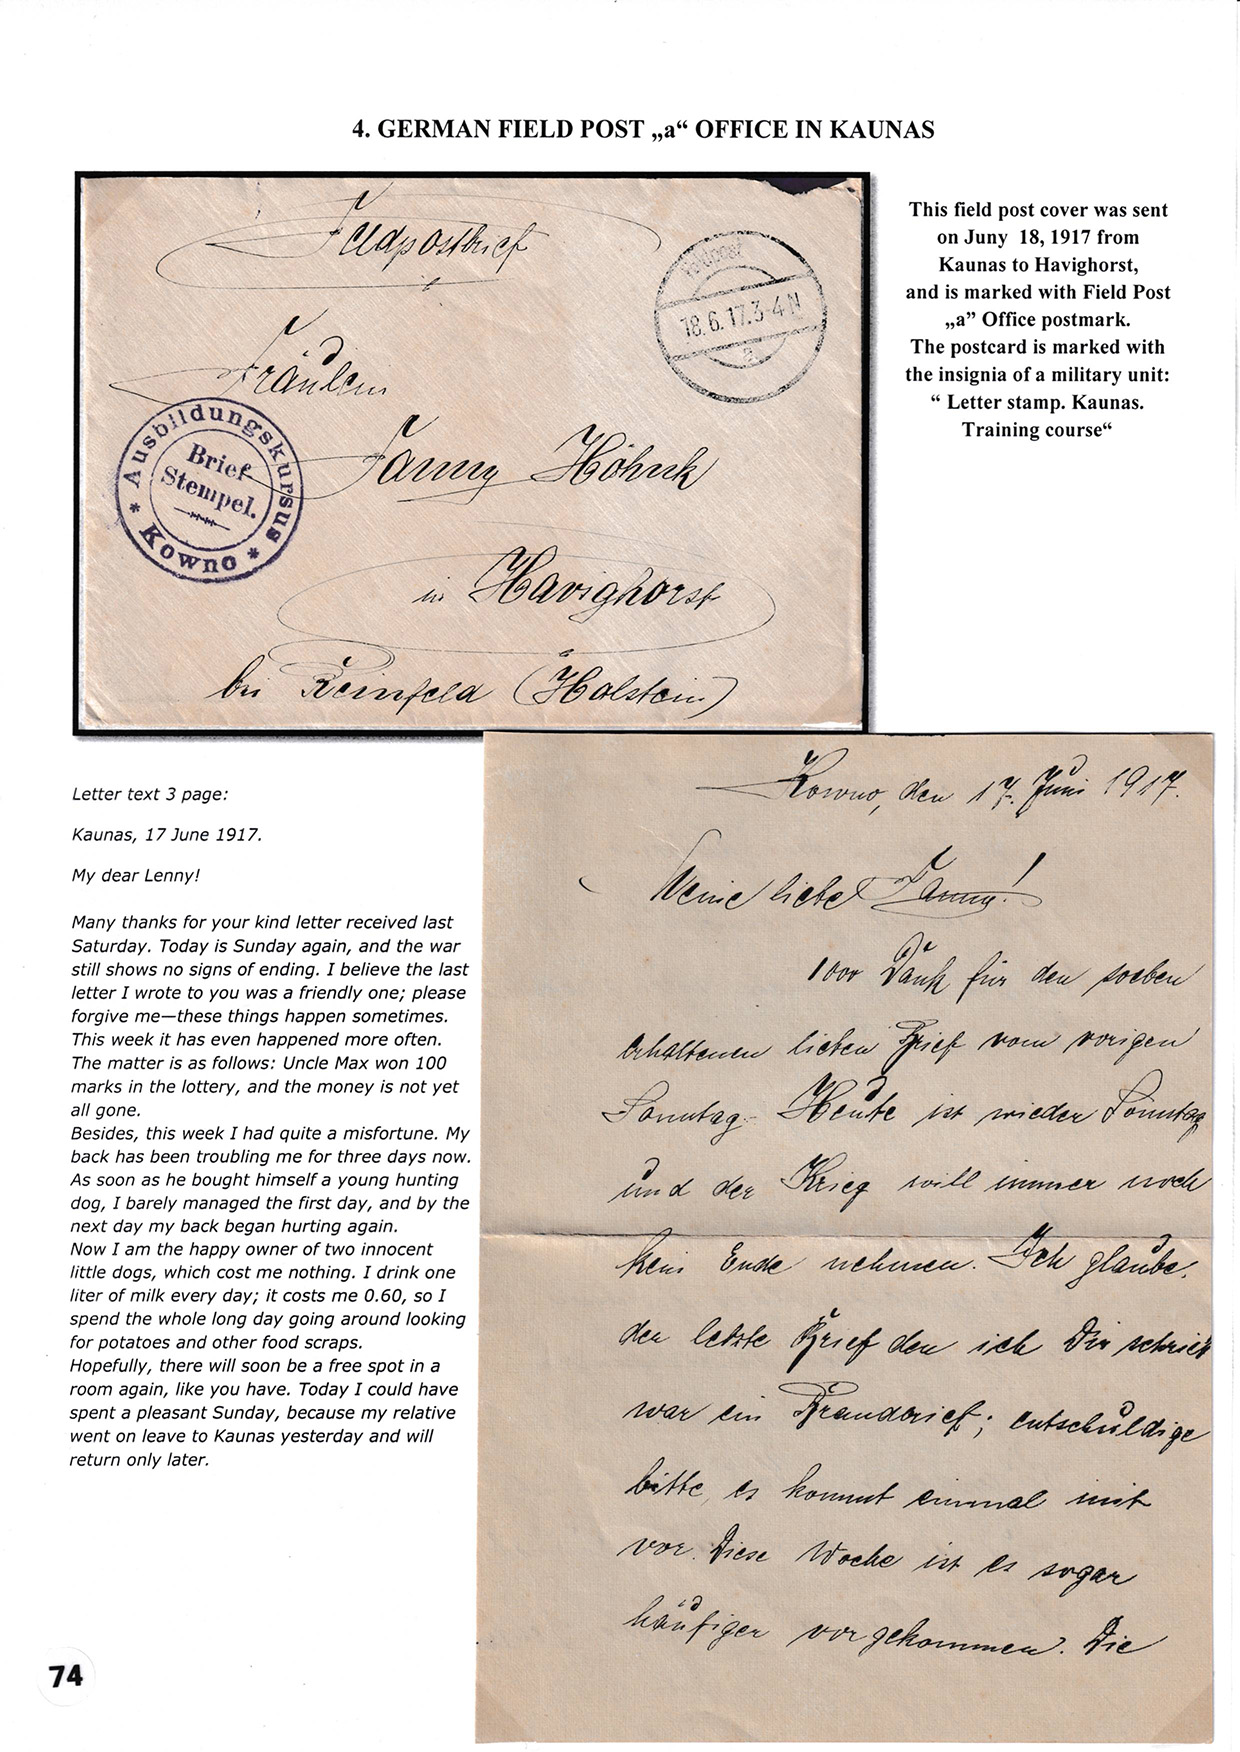 4. GERMAN FIELD POST „a“ OFFICE IN KAUNAS
Feldpostbrief
Feldpost
18.6.17.3-4N
a
Fräulein
Fanny Höhnk
in Havighorst
bei Reinfeld (Holstein)
Ausbildungskursus
Brief
Stempel.
* Kowno *
This field post cover was sent
on Juny 18, 1917 from
Kaunas to Havighorst,
and is marked with Field Post
„a” Office postmark.
The postcard is marked with
the insignia of a military unit:
“ Letter stamp. Kaunas.
Training course“
Letter text 3 page:
Kaunas, 17 June 1917.
My dear Lenny!
Many thanks for your kind letter received last
Saturday. Today is Sunday again, and the war
still shows no signs of ending. I believe the last
letter I wrote to you was a friendly one; please
forgive me—these things happen sometimes.
This week it has even happened more often.
The matter is as follows: Uncle Max won 100
marks in the lottery, and the money is not yet
all gone.
Besides, this week I had quite a misfortune. My
back has been troubling me for three days now.
As soon as he bought himself a young hunting
dog, I barely managed the first day, and by the
next day my back began hurting again.
Now I am the happy owner of two innocent
little dogs, which cost me nothing. I drink one
liter of milk every day; it costs me 0.60, so I
spend the whole long day going around looking
for potatoes and other food scraps.
Hopefully, there will soon be a free spot in a
room again, like you have. Today I could have
spent a pleasant Sunday, because my relative
went on leave to Kaunas yesterday and will
return only later.
Kowno, den 17. Juni 1917.
Meine liebe Fanny!
1000 Dank für den soeben
erhaltenen lieben Brief vom vorigen
Sonntag. Heute ist wieder Sonntag
und der Krieg will immer noch
kein Ende nehmen. Ich glaube,
der letzte Brief den ich Dir schrieb
war ein Brandbrief; entschuldige
bitte, es kommt einmal mit
vor. Diese Woche ist es sogar
häufiger vorgekommen. Die
74